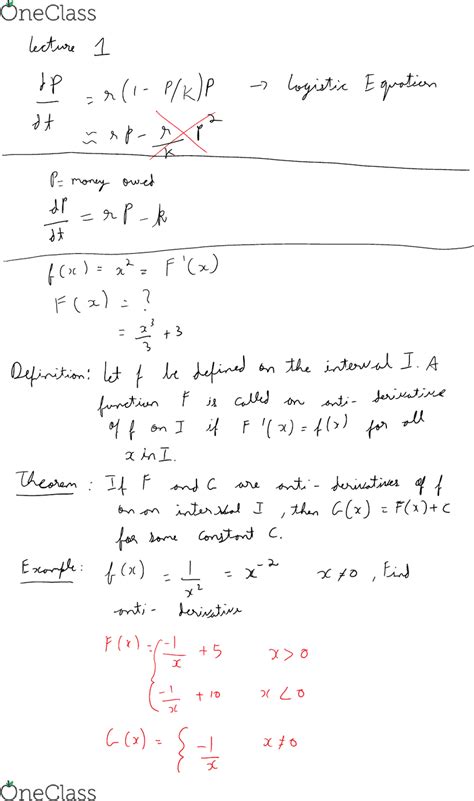 OneClass
Lecture 1
dP/dt = r(1 - P/K)P → Logistic Equation
≈ rP - r/K P²
P = money owed
dP/dt = rP - k
f(x) = x² = F'(x)
F(x) = ?
= x³/3 + 3
Definition: Let f be defined on the interval I. A
function F is called an anti-derivative
of f on I if F'(x) = f(x) for all
x in I.
Theorem: If F and G are anti-derivatives of f
on an interval I, then G(x) = F(x) + C
for some constant C.
Example: f(x) = 1/x² = x⁻² x ≠ 0, Find
anti-derivative
F(x) = { -1/x + 5 x > 0
-1/x + 10 x < 0
G(x) = { -1/x x ≠ 0
OneClass